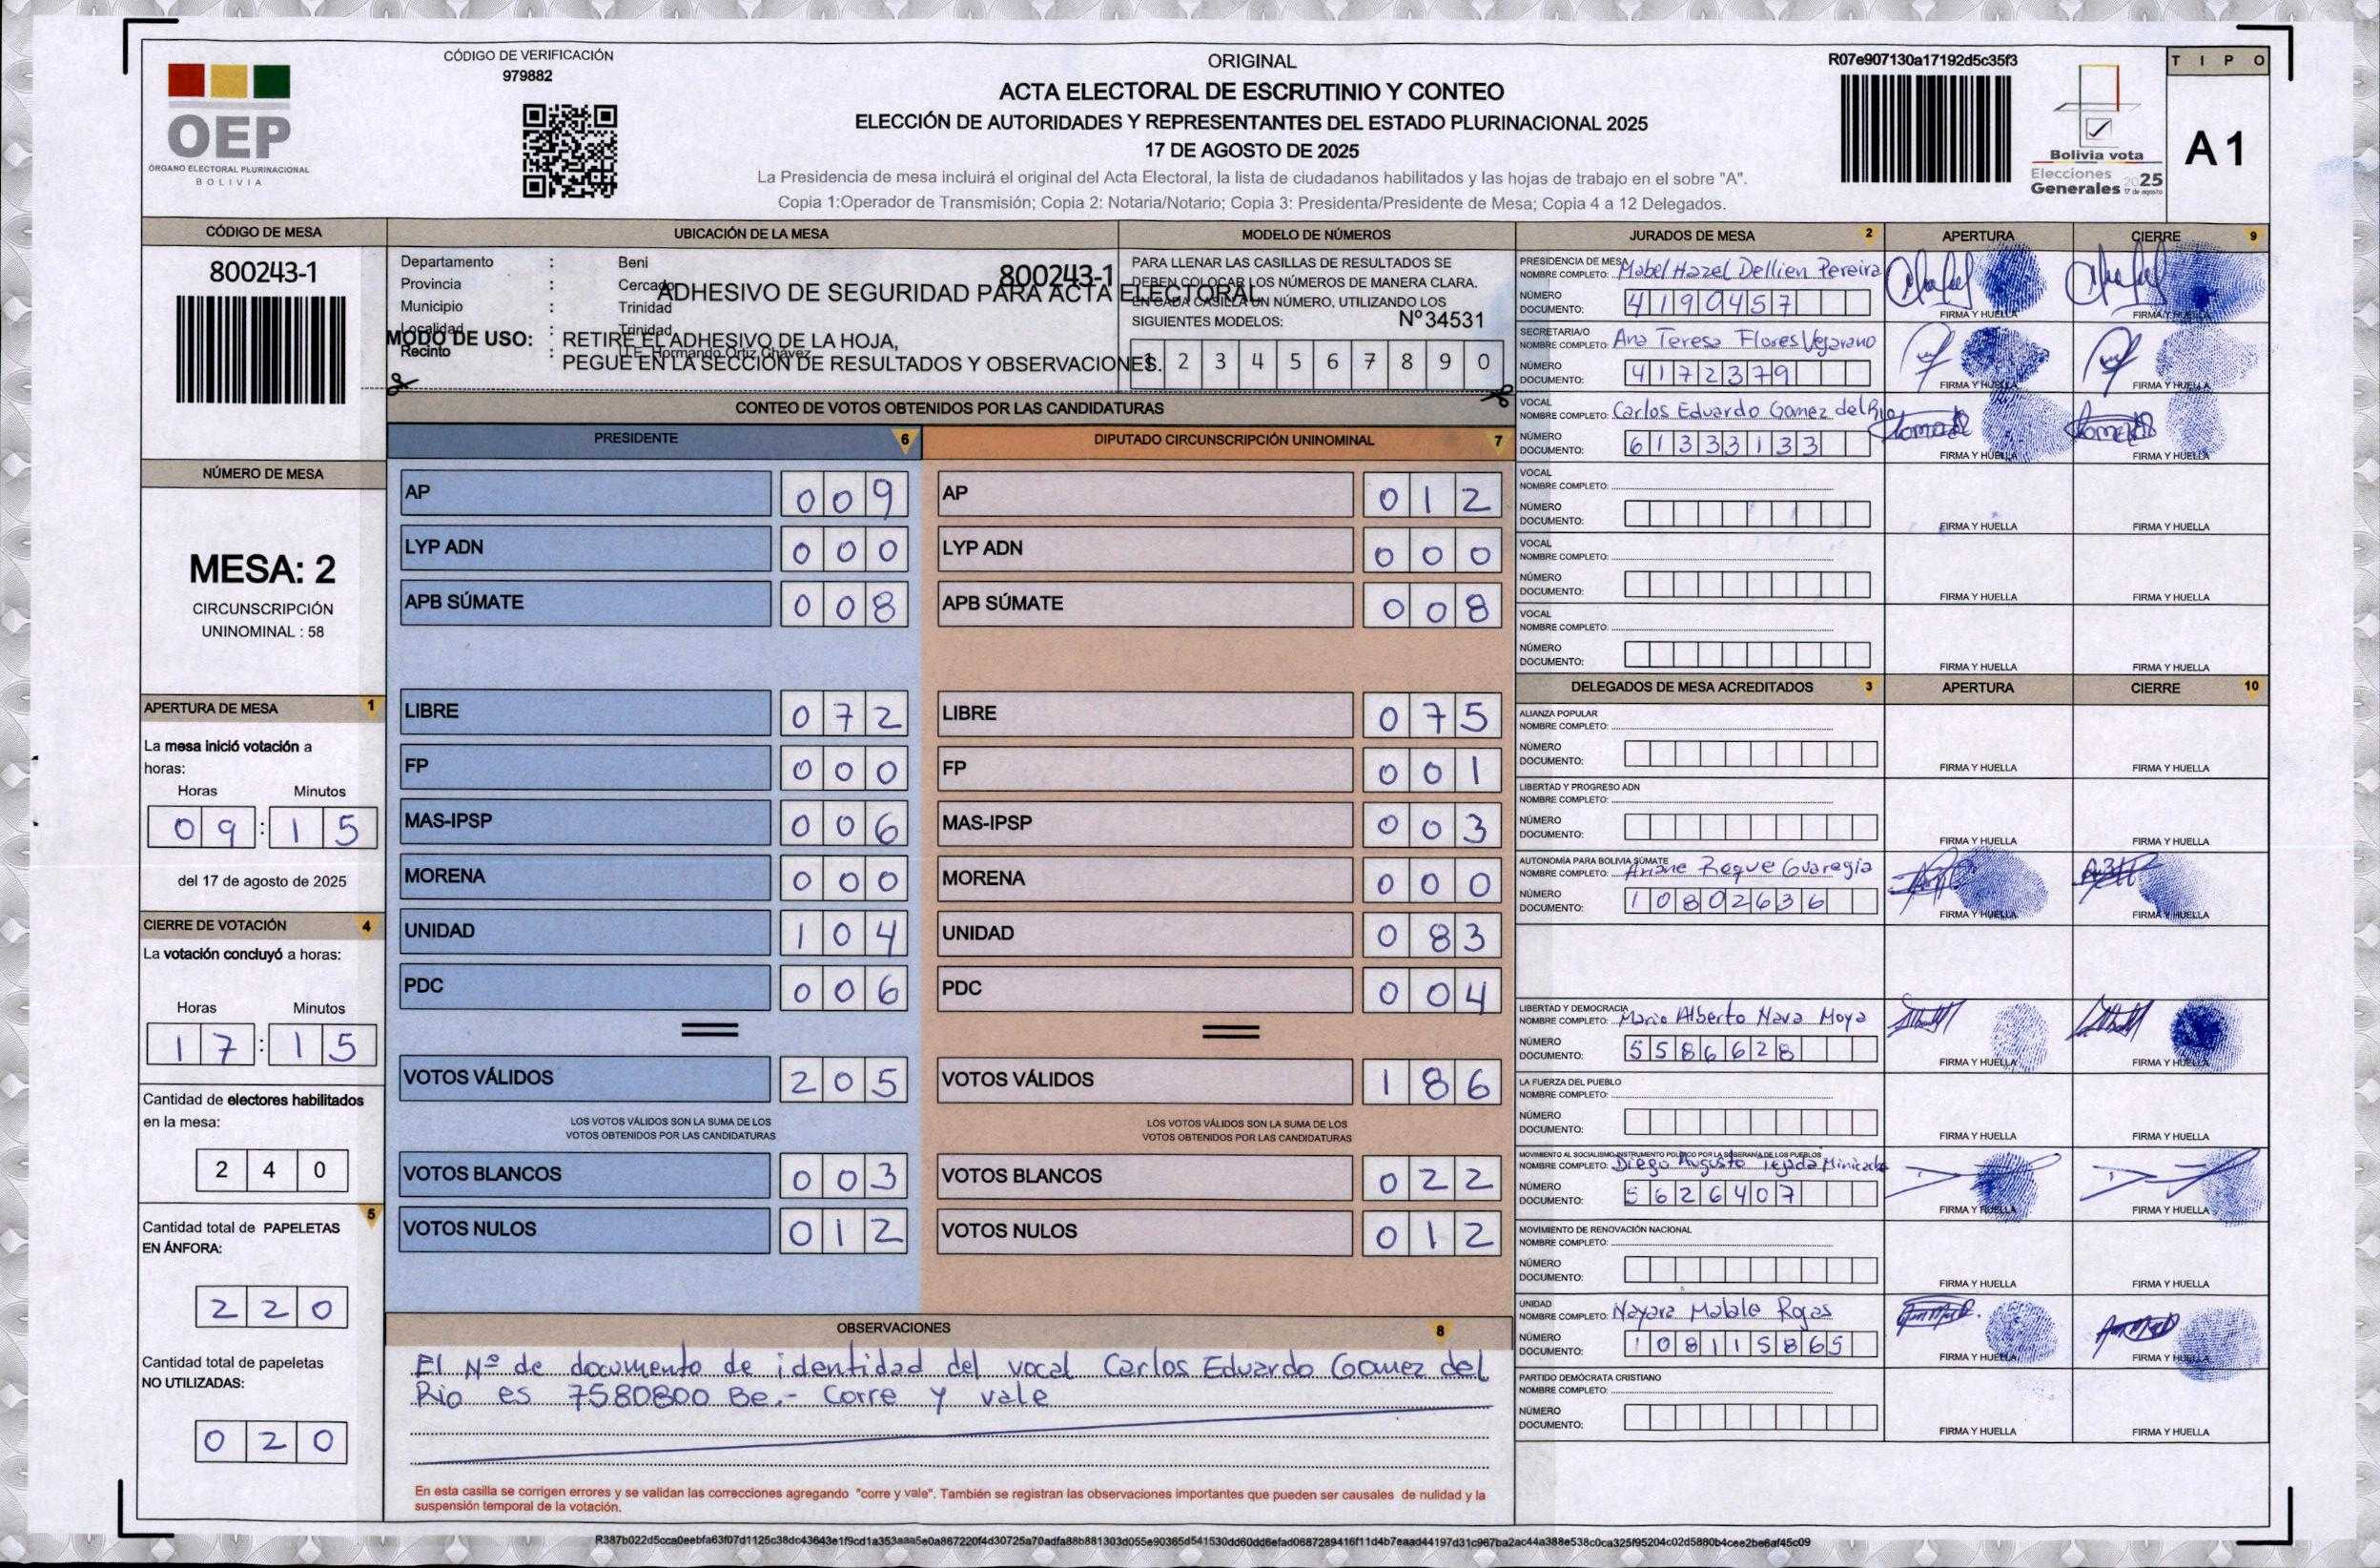 CÓDIGO DE VERIFICACIÓN
979882
OEP
ÓRGANO ELECTORAL PLURINACIONAL
BOLIVIA
ORIGINAL
ACTA ELECTORAL DE ESCRUTINIO Y CONTEO
ELECCIÓN DE AUTORIDADES Y REPRESENTANTES DEL ESTADO PLURINACIONAL 2025
17 DE AGOSTO DE 2025
La Presidencia de mesa incluirá el original del Acta Electoral, la lista de ciudadanos habilitados y las hojas de trabajo en el sobre "A".
Copia 1:Operador de Transmisión; Copia 2: Notaria/Notario; Copia 3: Presidenta/Presidente de Mesa; Copia 4 a 12 Delegados.
R07e907130a17192d5c35f3
Bolivia vota
Elecciones
Generales 2025
17 de agosto
TIPO
A1
CÓDIGO DE MESA
800243-1
UBICACIÓN DE LA MESA
Departamento : Beni
Provincia : Cercado
Municipio : Trinidad
Localidad : Trinidad
Recinto : U.E. Hormando Ortiz Chávez
800243-1
ADHESIVO DE SEGURIDAD PARA ACTA ELECTORAL
Nº34531
MODO DE USO: RETIRE EL ADHESIVO DE LA HOJA,
PEGUE EN LA SECCIÓN DE RESULTADOS Y OBSERVACIONES.
MODELO DE NÚMEROS
PARA LLENAR LAS CASILLAS DE RESULTADOS SE
DEBEN COLOCAR LOS NÚMEROS DE MANERA CLARA.
EN CADA CASILLA UN NÚMERO, UTILIZANDO LOS
SIGUIENTES MODELOS:
1 2 3 4 5 6 7 8 9 0
NÚMERO DE MESA
MESA: 2
CIRCUNSCRIPCIÓN
UNINOMINAL : 58
APERTURA DE MESA 1
La mesa inició votación a
horas:
Horas Minutos
09 : 15
del 17 de agosto de 2025
CIERRE DE VOTACIÓN 4
La votación concluyó a horas:
Horas Minutos
17 : 15
Cantidad de electores habilitados
en la mesa:
2 4 0
5
Cantidad total de PAPELETAS
EN ÁNFORA:
2 2 0
Cantidad total de papeletas
NO UTILIZADAS:
0 2 0
CONTEO DE VOTOS OBTENIDOS POR LAS CANDIDATURAS
PRESIDENTE 6
AP 009
LYP ADN 000
APB SÚMATE 008
LIBRE 072
FP 000
MAS-IPSP 006
MORENA 000
UNIDAD 104
PDC 006
VOTOS VÁLIDOS 205
LOS VOTOS VÁLIDOS SON LA SUMA DE LOS
VOTOS OBTENIDOS POR LAS CANDIDATURAS
VOTOS BLANCOS 003
VOTOS NULOS 012
DIPUTADO CIRCUNSCRIPCIÓN UNINOMINAL 7
AP 012
LYP ADN 000
APB SÚMATE 008
LIBRE 075
FP 001
MAS-IPSP 003
MORENA 000
UNIDAD 083
PDC 004
VOTOS VÁLIDOS 186
LOS VOTOS VÁLIDOS SON LA SUMA DE LOS
VOTOS OBTENIDOS POR LAS CANDIDATURAS
VOTOS BLANCOS 022
VOTOS NULOS 012
OBSERVACIONES 8
El Nº de documento de identidad del vocal Carlos Eduardo Gomez del
Rio es 7580800 Be.- Corre y vale
En esta casilla se corrigen errores y se validan las correcciones agregando "corre y vale". También se registran las observaciones importantes que pueden ser causales de nulidad y la
suspensión temporal de la votación.
JURADOS DE MESA 2 APERTURA CIERRE 9
PRESIDENCIA DE MESA
NOMBRE COMPLETO: Mabel Hazel Dellien Pereira
NÚMERO
DOCUMENTO: 4190457
FIRMA Y HUELLA FIRMA Y HUELLA
SECRETARIA/O
NOMBRE COMPLETO: Ana Teresa Flores Vejarano
NÚMERO
DOCUMENTO: 4172379
FIRMA Y HUELLA FIRMA Y HUELLA
VOCAL
NOMBRE COMPLETO: Carlos Eduardo Gomez del Rio
NÚMERO
DOCUMENTO: 61333133
FIRMA Y HUELLA FIRMA Y HUELLA
VOCAL
NOMBRE COMPLETO:
NÚMERO
DOCUMENTO:
FIRMA Y HUELLA FIRMA Y HUELLA
VOCAL
NOMBRE COMPLETO:
NÚMERO
DOCUMENTO:
FIRMA Y HUELLA FIRMA Y HUELLA
VOCAL
NOMBRE COMPLETO:
NÚMERO
DOCUMENTO:
FIRMA Y HUELLA FIRMA Y HUELLA
DELEGADOS DE MESA ACREDITADOS 3 APERTURA CIERRE 10
ALIANZA POPULAR
NOMBRE COMPLETO:
NÚMERO
DOCUMENTO:
FIRMA Y HUELLA FIRMA Y HUELLA
LIBERTAD Y PROGRESO ADN
NOMBRE COMPLETO:
NÚMERO
DOCUMENTO:
FIRMA Y HUELLA FIRMA Y HUELLA
AUTONOMÍA PARA BOLIVIA SÚMATE
NOMBRE COMPLETO: Ariane Roque Guaregia
NÚMERO
DOCUMENTO: 10802636
FIRMA Y HUELLA FIRMA Y HUELLA
LIBERTAD Y DEMOCRACIA
NOMBRE COMPLETO: Mario Alberto Nava Moya
NÚMERO
DOCUMENTO: 5586628
FIRMA Y HUELLA FIRMA Y HUELLA
LA FUERZA DEL PUEBLO
NOMBRE COMPLETO:
NÚMERO
DOCUMENTO:
FIRMA Y HUELLA FIRMA Y HUELLA
MOVIMIENTO AL SOCIALISMO-INSTRUMENTO POLÍTICO POR LA SOBERANÍA DE LOS PUEBLOS
NOMBRE COMPLETO: Diego Augusto Tejada
NÚMERO
DOCUMENTO: 5626407
FIRMA Y HUELLA FIRMA Y HUELLA
MOVIMIENTO DE RENOVACIÓN NACIONAL
NOMBRE COMPLETO:
NÚMERO
DOCUMENTO:
FIRMA Y HUELLA FIRMA Y HUELLA
UNIDAD
NOMBRE COMPLETO: Nayara Malale Rojas
NÚMERO
DOCUMENTO: 108115865
FIRMA Y HUELLA FIRMA Y HUELLA
PARTIDO DEMÓCRATA CRISTIANO
NOMBRE COMPLETO:
NÚMERO
DOCUMENTO:
FIRMA Y HUELLA FIRMA Y HUELLA